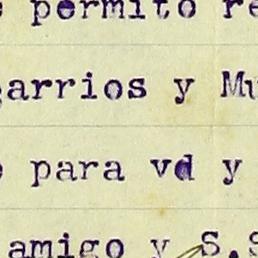 permito re
arrios y Mu
para vd y
amigo y S.S